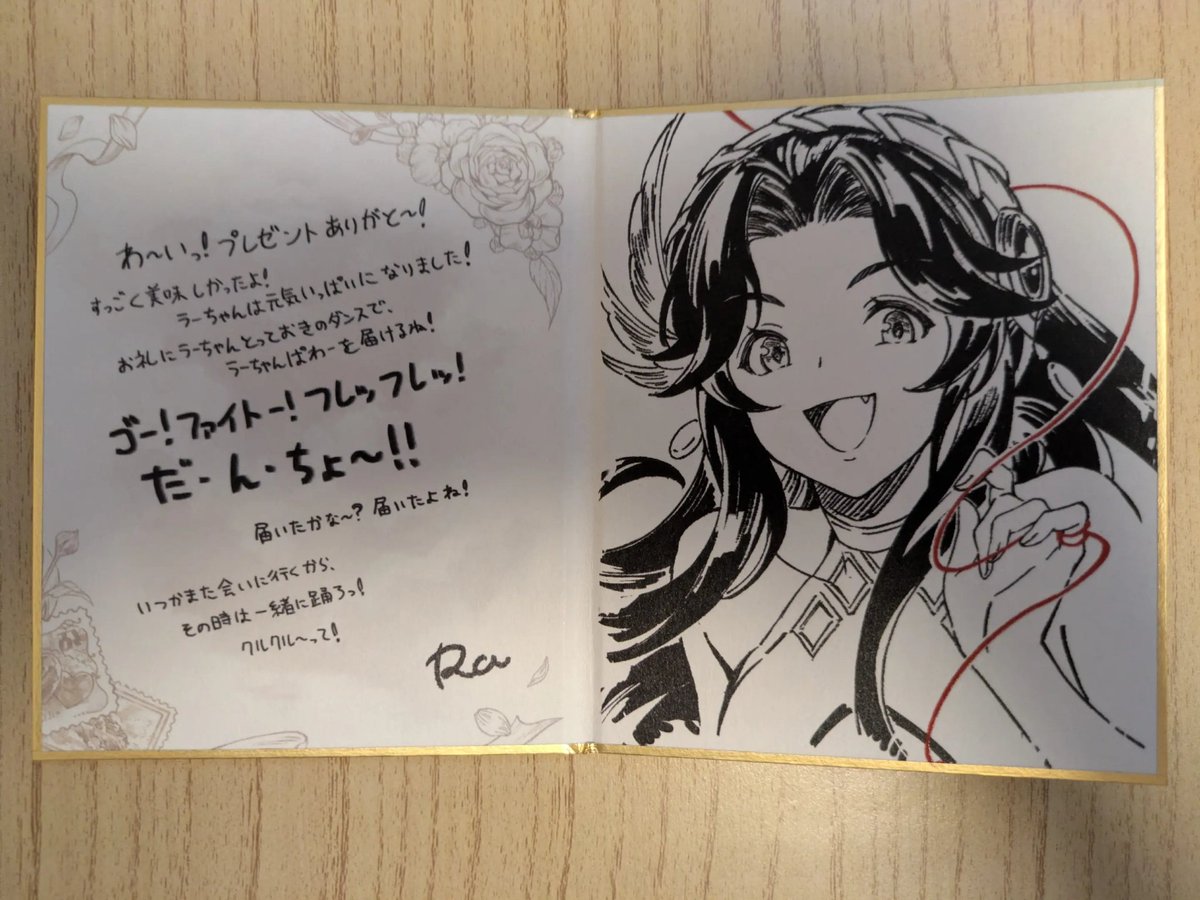 わ〜いっ!プレゼントありがと〜!
すっごく美味しかったよ!
ラーちゃんは元気いっぱいになりました!
お礼にラーちゃんとっておきのダンスで、
ラーちゃんぱわーを届けるね!
ゴー!ファイトー!フレッフレッ!
だ・ん・ちょ〜!!
届いたかな〜?届いたよね!
いつかまた会いに行くから、
その時は一緒に踊ろっ!
クルクル〜って!
Ra